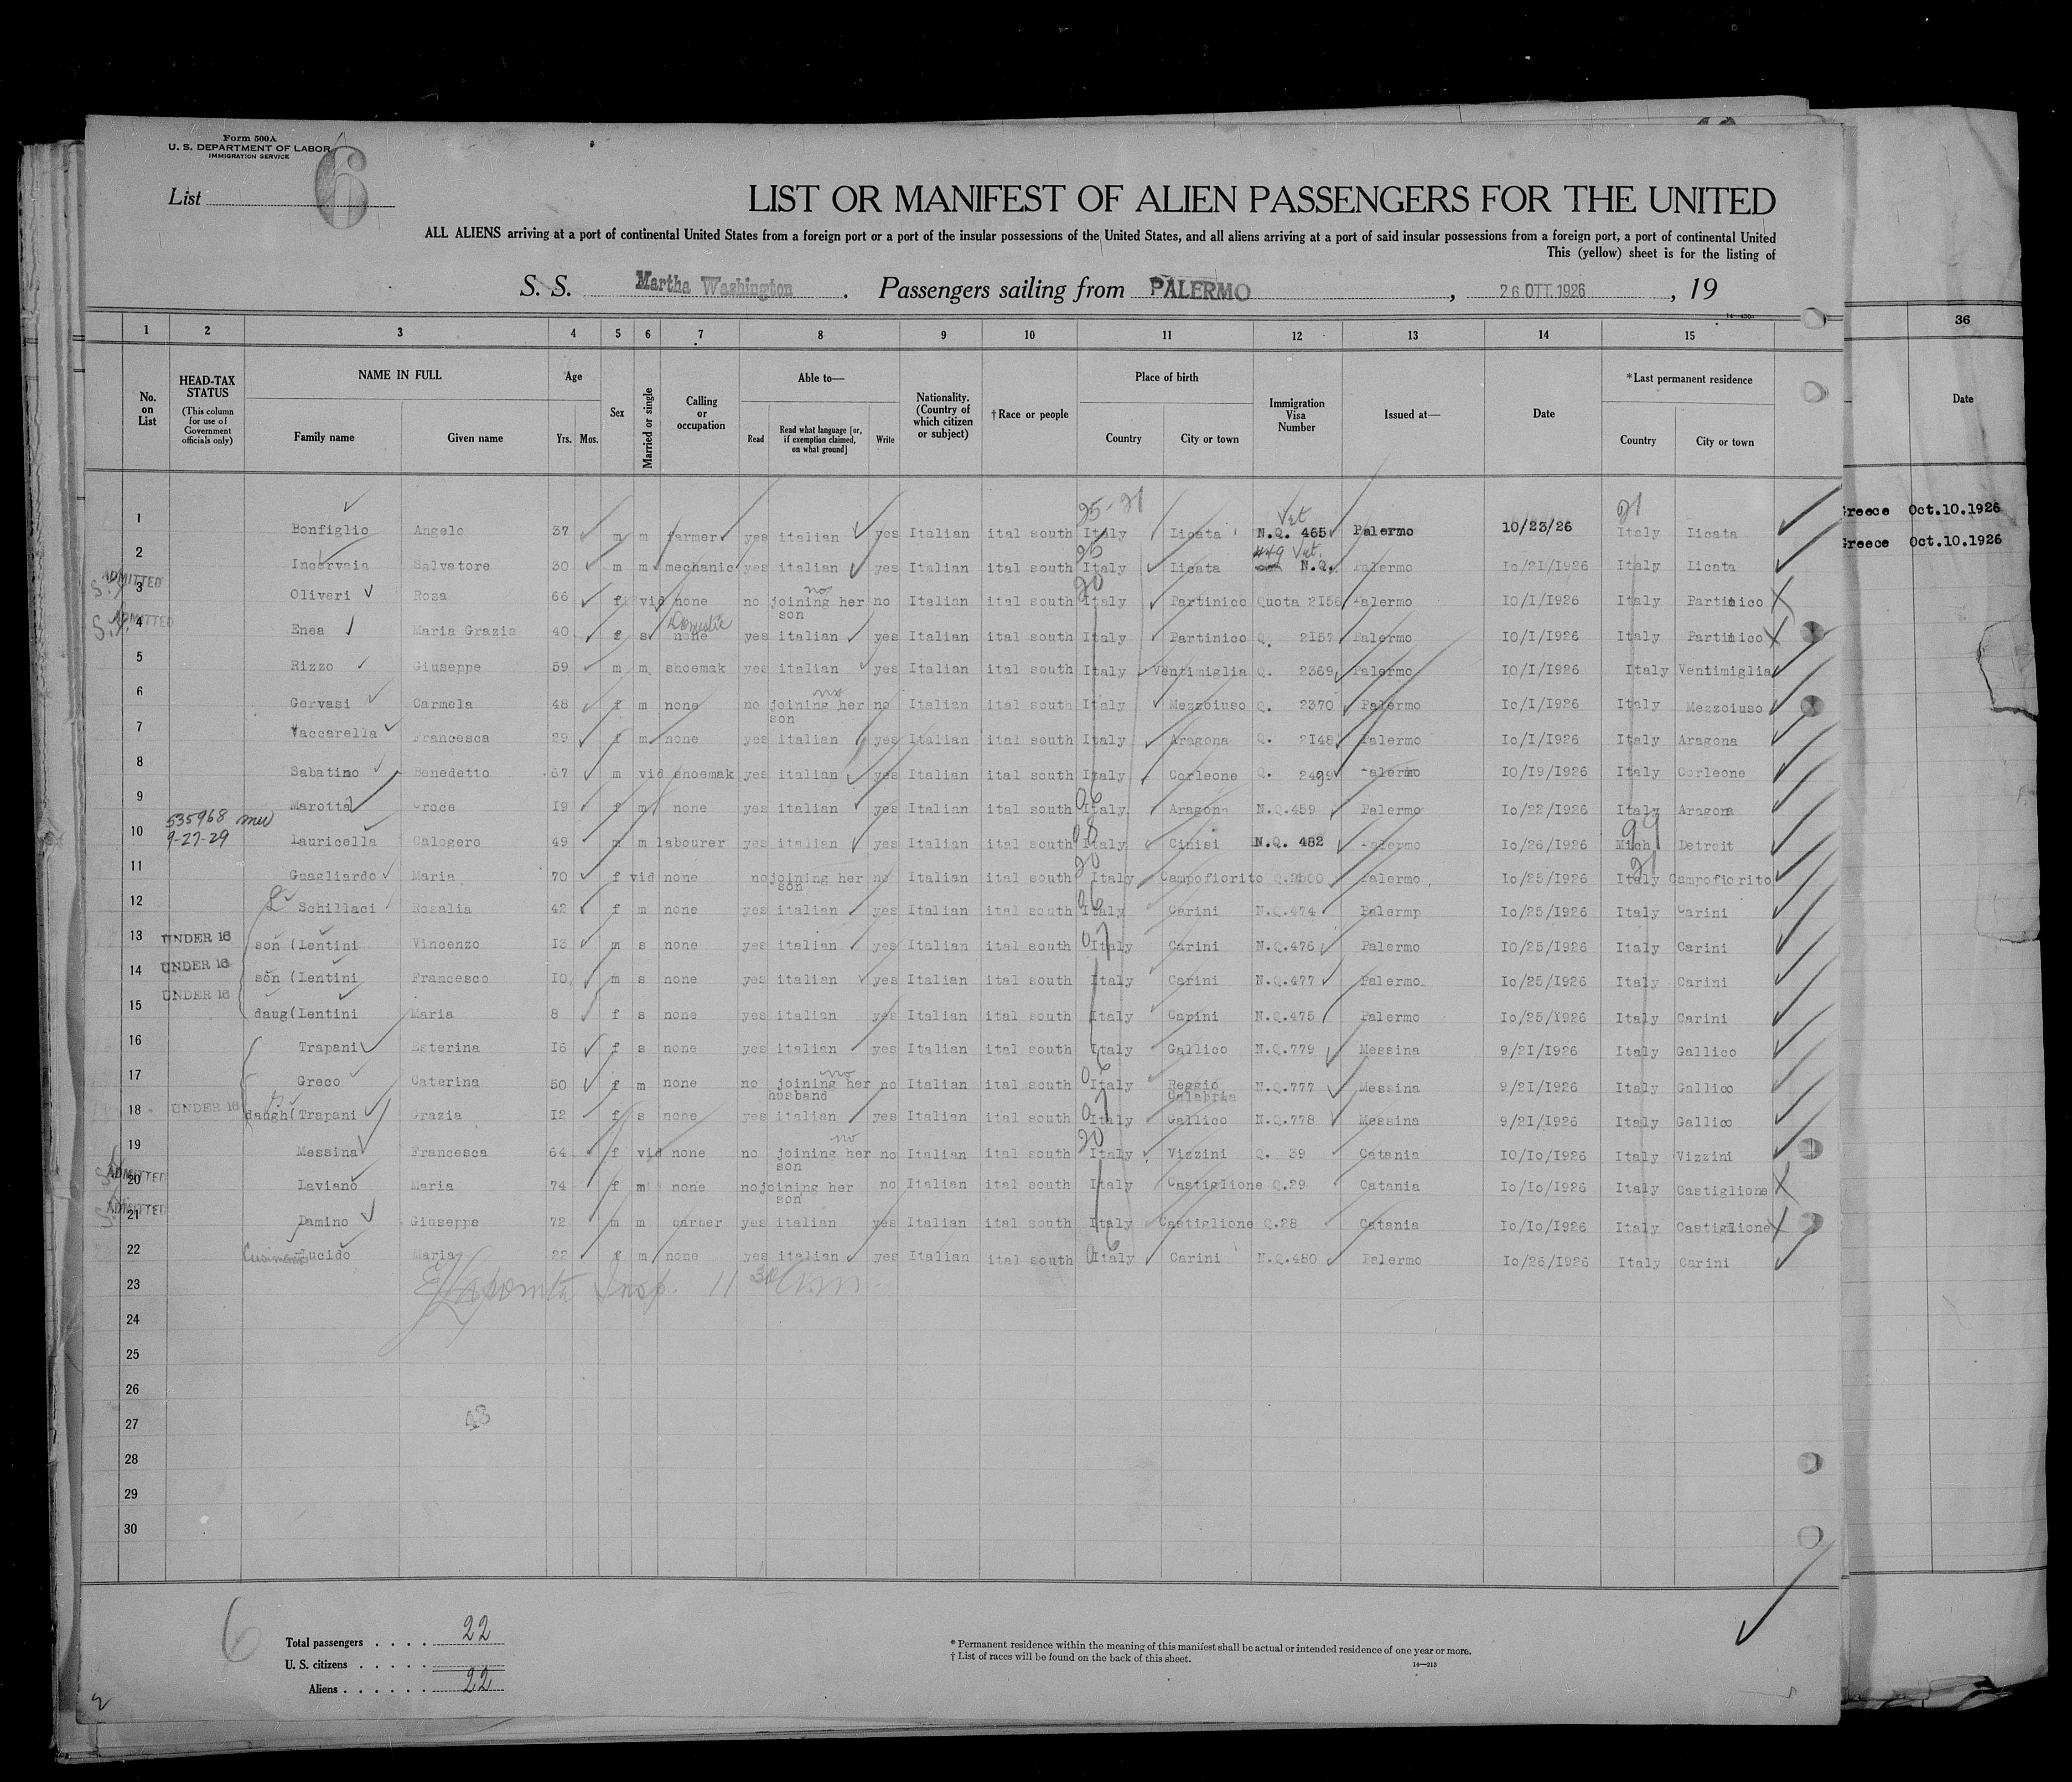 Form 500A
U. S. DEPARTMENT OF LABOR
IMMIGRATION SERVICE
6
List
LIST OR MANIFEST OF ALIEN PASSENGERS FOR THE UNITED
ALL ALIENS arriving at a port of continental United States from a foreign port or a port of the insular possessions of the United States, and all aliens arriving at a port of said insular possessions from a foreign port, a port of continental United
This (yellow) sheet is for the listing of
S. S. Martha Washington . Passengers sailing from PALERMO , 26 OTT. 1926 , 19
1 2 3 4 5 6 7 8 9 10 11 12 13 14 15 36
No. on List
HEAD-TAX STATUS
(This column for use of Government officials only)
NAME IN FULL
Family name Given name
Age
Yrs. Mos.
Sex
Married or single
Calling or occupation
Able to—
Read
Read what language [or, if exemption claimed, on what ground]
Write
Nationality. (Country of which citizen or subject)
† Race or people
Place of birth
Country City or town
Immigration Visa Number
Issued at—
Date
*Last permanent residence
Country City or town
Date
25-21 Vet 21
1 Bonfiglio Angelo 37 m m farmer yes italian yes Italian ital south Italy Licata N.Q. 465 Palermo 10/23/26 Italy Licata
Greece Oct.10.1926
2 Incorvaia Salvatore 30 m m mechanic yes italian yes Italian ital south Italy Licata 449 Vet. N.Q. Palermo Io/2I/I926 Italy Licata
Greece Oct.10.1926
ADMITTED 3 Oliveri Rosa 66 f vid none no joining her son no no Italian ital south 20 Italy Partinico Quota 2I56 Palermo IO/I/I926 Italy Partinico
ADMITTED 4 Enea Maria Grazia 40 f s none Domestic yes italian yes Italian ital south Italy Partinico Q. 2I57 Palermo IO/I/I926 Italy Partinico
5 Rizzo Giuseppe 59 m m shoemak yes italian yes Italian ital south Italy Ventimiglia Q. 2369 Palermo IO/I/I926 Italy Ventimiglia
6 Gervasi Carmela 48 f m none no joining her son no no Italian ital south Italy Mezzoiuso Q. 2370 Palermo Io/I/I926 Italy Mezzoiuso
7 Vaccarella Francesca 29 f m none yes italian yes Italian ital south Italy Aragona Q. 2I48 Palermo Io/I/I926 Italy Aragona
8 Sabatino Benedetto 67 m vid shoemak yes italian yes Italian ital south Italy Corleone Q. 2499 Palermo IO/I9/I926 Italy Corleone
9 Marotta Croce I9 f m none yes italian yes Italian ital south 06 Italy Aragona N.Q.459 Palermo Io/22/I926 Italy Aragona
535968 9-27-29
10 Lauricella Calogero 49 m m labourer yes italian yes Italian ital south Italy Cinisi N.Q. 482 Palermo Io/26/I926 99 Mich Detroit
11 Guagliardo Maria 70 f vid none no joining her son no Italian ital south 20 Italy Campofiorito Q.2500 Palermo Io/25/I926 21 Italy Campofiorito
12 Schillaci Rosalia 42 f m none yes italian yes Italian ital south 06 Italy Carini N.Q.474 Palermp Io/25/I926 Italy Carini
13 UNDER 16 son (Lentini Vincenzo I3 m s none yes italian yes Italian ital south 07 Italy Carini N.Q.476 Palermo Io/25/I926 Italy Carini
14 UNDER 16 son (Lentini Francesco IO m s none yes italian yes Italian ital south Italy Carini N.Q.477 Palermo Io/25/I926 Italy Carini
15 UNDER 16 daug(Lentini Maria 8 f s none yes italian yes Italian ital south Italy Carini N.Q.475 Palermo Io/25/I926 Italy Carini
16 Trapani Esterina I6 f s none yes italian yes Italian ital south Italy Gallico N.Q.779 Messina 9/2I/I926 Italy Gallico
17 Greco Caterina 50 f m none no joining her husband no no Italian ital south 06 Italy Reggio Calabria N.Q.777 Messina 9/2I/I926 Italy Gallico
18 UNDER 16 daugh(Trapani Grazia I2 f s none yes italian yes Italian ital south 07 Italy Gallico N.Q.778 Messina 9/2I/I926 Italy Gallico
19 Messina Francesca 64 f vid none no joining her son no no Italian ital south 20 Italy Vizzini Q. 39 Catania IO/Io/I926 Italy Vizzini
ADMITTED 20 Laviano Maria 74 f m none no joining her son no Italian ital south Italy Castiglione Q.29 Catania Io/Io/I926 Italy Castiglione
ADMITTED 21 Damino Giuseppe 72 m m carber yes italian yes Italian ital south Italy Castiglione Q.28 Catania Io/Io/I926 Italy Castiglione
22 Lucido Maria 22 f m none yes italian yes Italian ital south 06 Italy Carini N.Q.480 Palermo Io/26/I926 Italy Carini
23 Insp. 11 30 a.m.
24
25
26
27
28
29
30
6
Total passengers . . . . 22
U. S. citizens . . . . .
Aliens . . . . . . 22
* Permanent residence within the meaning of this manifest shall be actual or intended residence of one year or more.
† List of races will be found on the back of this sheet.
14—213
2